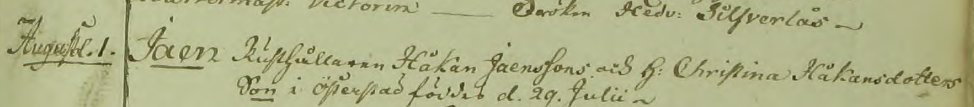 Victorin — Fröken Hedv: Silfverlås
August. d. 1. Jaen Rusthållaren Håkan Jaenssons och H: Christina Håkansdotters
Son i Österstad föddes d. 29. Julii